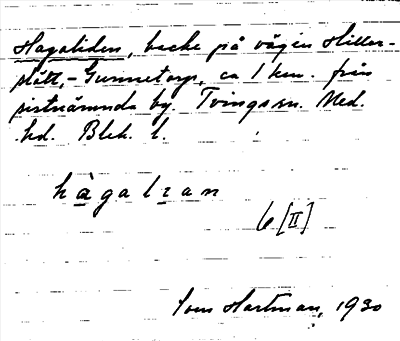 Hagaliden, backe på vägen Hiller-
slätt,-Gunnetorp, ca 1 km. från
sistnämnda by. Tvings sn. Med.
hd. Blek. l.
hàgalıan
6 [II]
Hartman, 1930